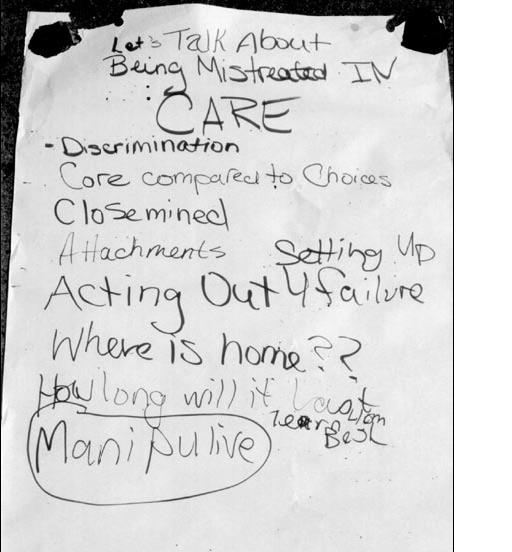 Let's Talk About
Being Mistreated IN
CARE
- Discrimination
Core compared to Choices
Closemined
Attachments Setting Up
Acting Out 4 failure
Where is home??
How long will it Last
Learn
Best
Manipulive